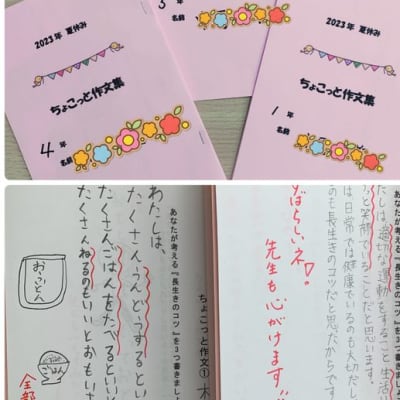 2023年 夏休み
ちょこっと作文集
4年
名前
年
名前
2023年 夏休み
ちょこっと作文集
1年
名前
たしは、適切な運動をすること生活
と笑顔でいることだと思います。
は、日常では健康でいるのも大切だし
も長生きのコツだと思だからです
ばらしいネ!
先生も心がけます!!
ちょこっと作文①
あなたが考える『長生きのコツ』を3つ書きましょ
わたしは、
たくさんうんどうするとい
たくさんごはんをたべるとい
たくさんねるのもいいとおもいま
おふとん
ごはん
全部